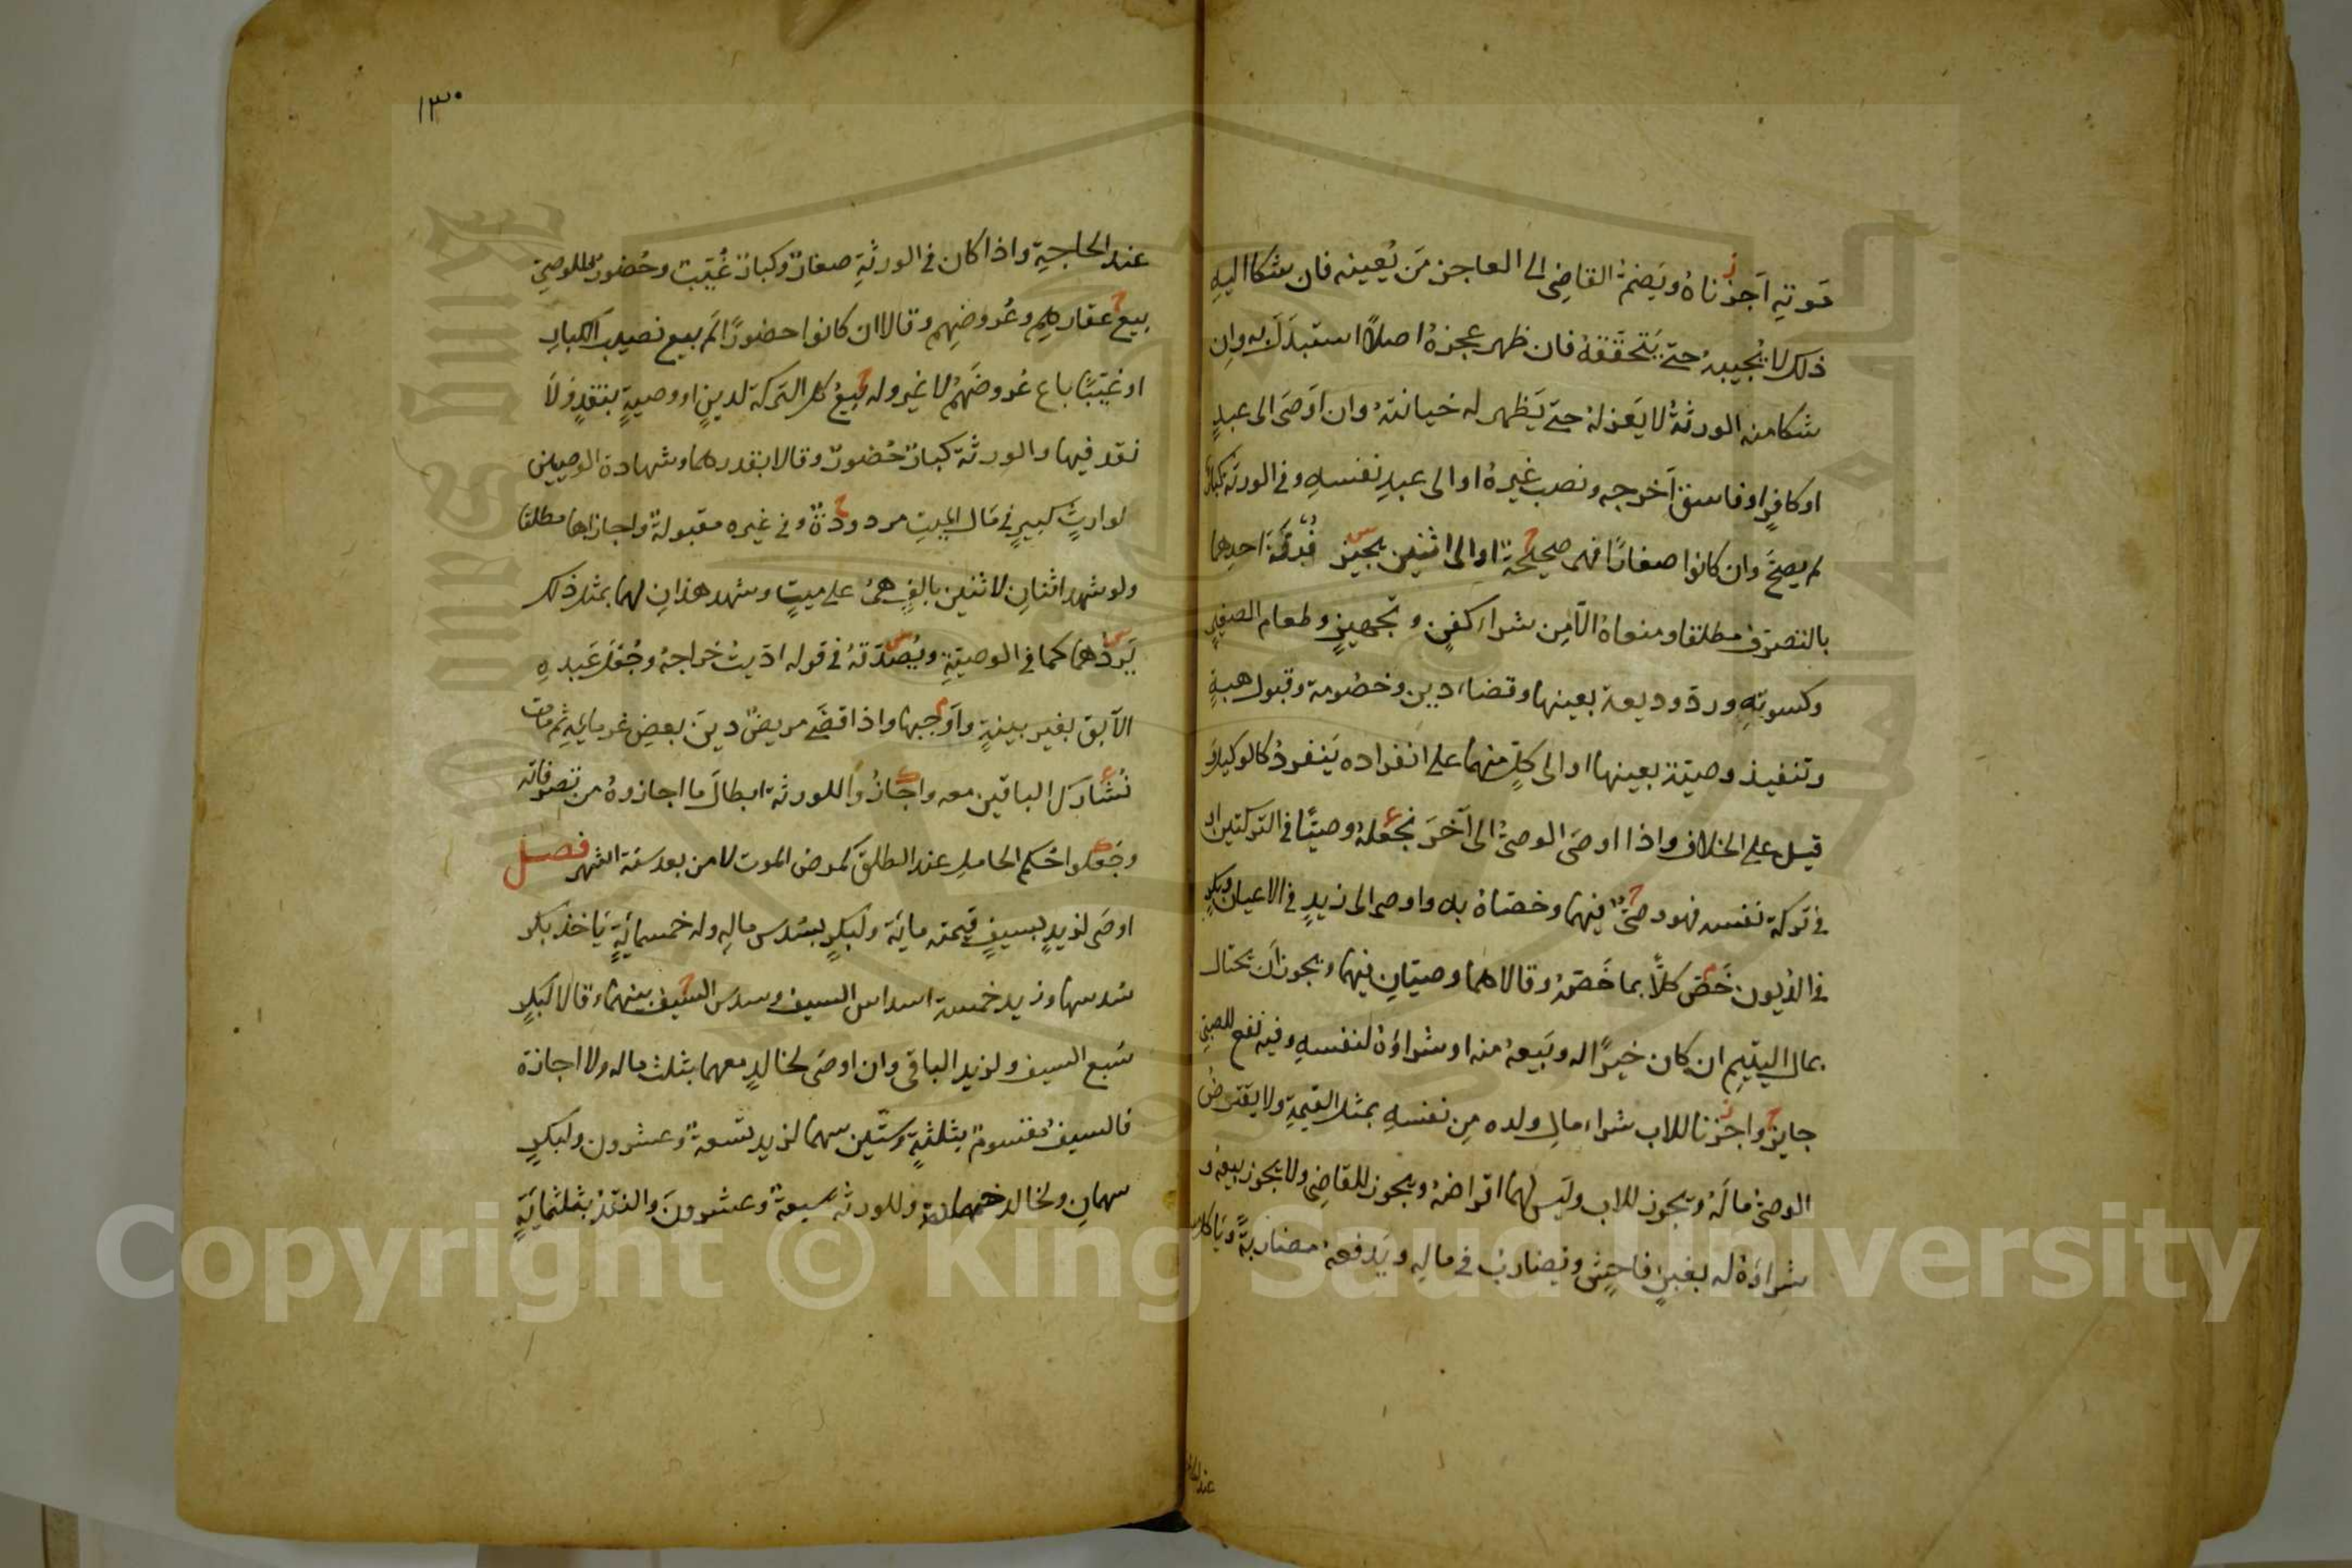 موته أجزناه ويضم القاضي الى العاجز من يعينه فان شكا اليه
ذلك لا يجيبه حتى يتحققه فان ظهر عجزه اصلا استبدل به وان
شكا منه الورثة لا يعزله حتى يظهر له خيانته وان اوصى الى عبد
او كافر او فاسق اخرجه ونصب غيره او الى عبد نفسه وفي الورثة كبار
لم يصح وان كانوا صغارا فهي صحيحة او الى اثنين يجيز احدهما
بالتصرف مطلقا ومنعاه الا من شراء كفن وتجهيز وطعام الصغير
وكسوته ورد وديعة بعينها وقضاء دين وخصومة وقبول هبة
وتنفيذ وصية بعينها او الى كل منهما على انفراده ينفرد كالوكيل و
قيل على الخلاف واذا اوصى الوصي الى آخر نجعله وصيا في التركتين او
في تركة نفسه فهو وصي فيهما وخصاه به او اوصى الى زيد في الاعيان وبكر
في الديون خص كلا بما خصه وقالا هما وصيان فيهما ويجوز ان يحتال
بمال اليتيم ان كان خيرا له وبيعه منه او شراؤه لنفسه وفيه نفع للصبي
جايز واجزنا للاب شراء مال ولده من نفسه بمثل القيمة ولا يقترض
الوصي ماله ويجوز للاب وليس لهما اقراضه ويجوز للقاضي ولا يجوز بيعه و
شراؤه له بغبن فاحش ويضارب في ماله ويدفعه مضاربة وياكل
عند الحا
١٣٠
عند الحاجة واذا كان في الورثة صغار وكبار غيب وحضور فللوصي
بيع عقارهم وعروضهم وقالا ان كانوا حضورا لم يبع نصيب الكبار
او غيبا باع عروضهم لا غير وله بيع كل التركة لدين او وصية بنقد ولا
نقد فيها والورثة كبار حضور وقالا بقدرهما وشهادة الوصيين
لوارث كبير في مال الميت مردودة وفي غيره مقبولة واجازاها مطلقا
ولو شهد اثنان لاثنين بالف على ميت وشهد هذان لهما بمثل ذلك
يردهما كما في الوصية ويصدقه في قوله اديت خراجه وجعل عبده
الآبق بغير بينة واوجبها واذا قضى مريض دين بعض غرمايه ثم مات
نشارك الباقين معه واجازوا للورثة ابطال ما اجازوه من تصرفاته
وجعلوا حكم الحامل عند الطلق كمرض الموت لا من بعد ستة اشهر فصل
اوصى لزيد بسيف قيمته ماية ولبكر بسدس ماله وله خمسماية ياخذ بكر
سدسها وزيد خمسة اسداس السيف وسدس السيف بينهما وقالا لبكر
سبع السيف ولزيد الباقي وان اوصى لخالد معهما بثلث ماله ولا اجازة
فالسيف مقسوم بثلثة وستين سهما لزيد تسعة وعشرون ولبكر
سهمان ولخالد خمسة وللورثة سبعة وعشرون والنقد بثلثماية
Copyright © King Saud University